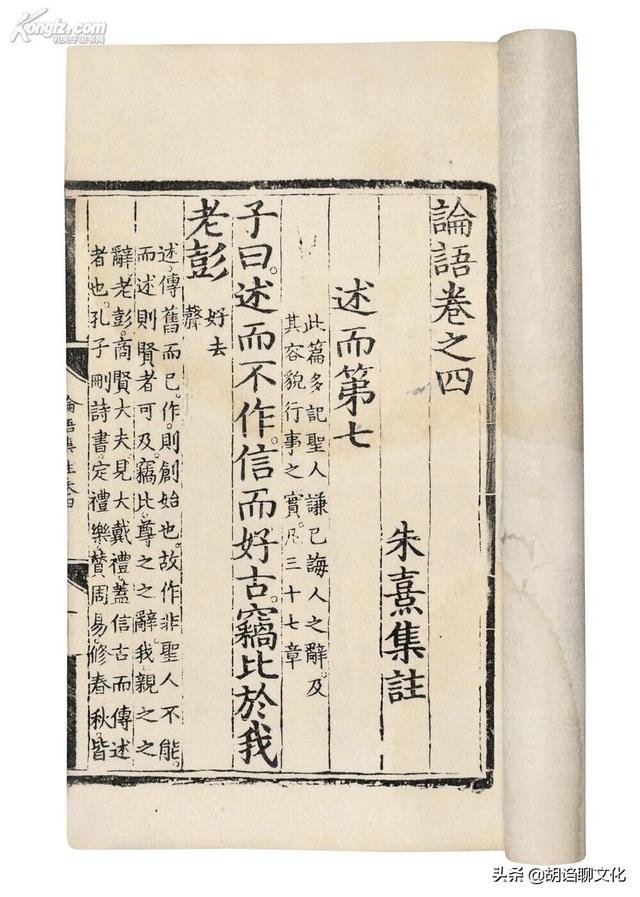 論語卷之四
朱熹集註
述而第七
此篇多記聖人謙己誨人之辭及
其容貌行事之實凡三十七章
子曰述而不作信而好古竊比於我
老彭
好去
聲
述傳舊而已作則創始也故作非聖人不能
而述則賢者可及竊比尊之之辭我親之之
辭老彭商賢大夫見大戴禮蓋信古而傳述
者也孔子刪詩書定禮樂贊周易修春秋皆
論語集註卷四
Kongfz.com
孔夫子旧书网
头条 @胡诌聊文化